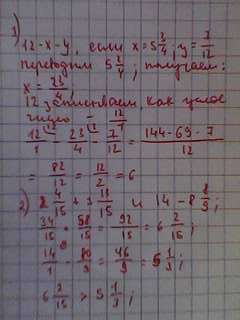 1)
12-x-y, если x=5 3/4; y=7/12
переводим 5 3/4; получаем:
x=23/4
12 записываем, как целое
число
12/1 - 23/4 - 7/12 = 144-69-7/12
= 82/12 = 12/2 = 6
2) 2 4/15 + 3 13/15 и 14-8 8/9;
34/15 + 58/15 = 92/15 = 6 2/15;
14/1 - 80/9 = 46/9 = 5 1/9;
6 2/15 > 5 1/9;